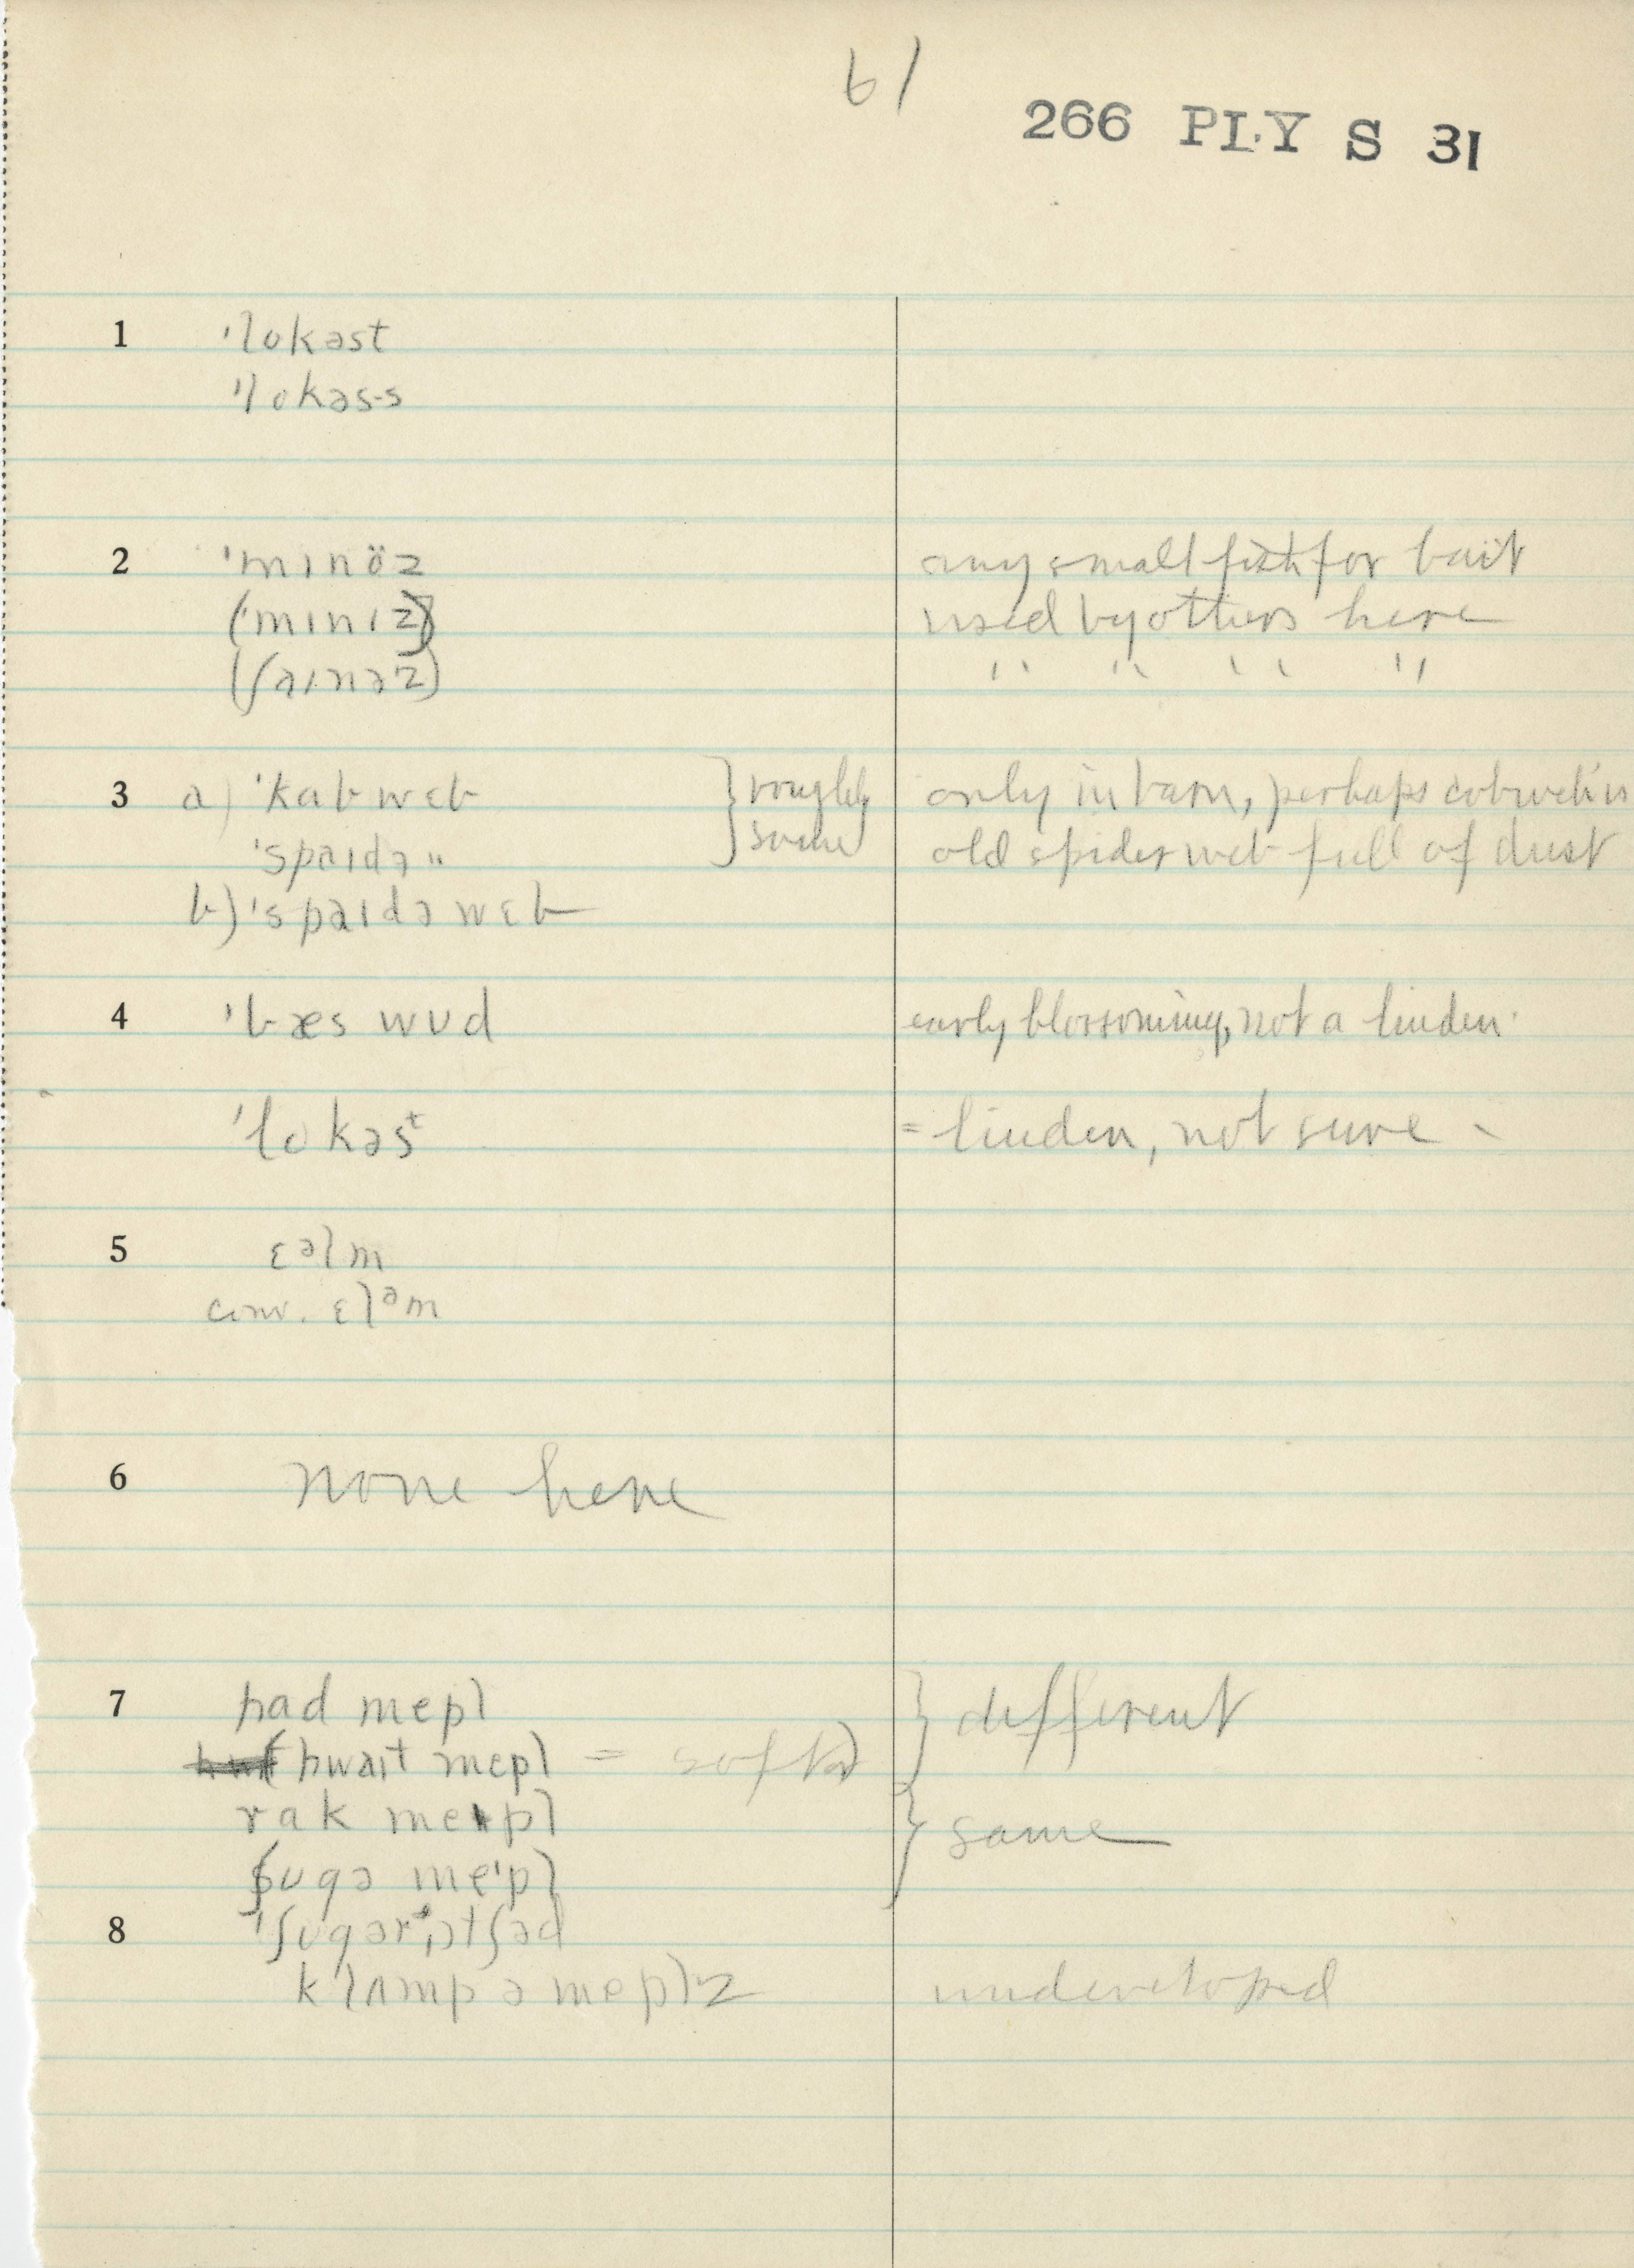 61
266 PLY S 31
1 'lokəst
'lokəs-s
2 'mɪnöz any small fish for bait
('mɪnɪz) used by others here
(ʃaɪnəz) " " " "
3 a) 'kabwɛb } roughly same only in barn, perhaps cobweb is
'spaɪdə " old spider web full of dust
b) 'spaɪdə wɛb
4 'bæs wʊd early blossoming, not a linden.
'lokəsᵗ = linden, not sure
5 ɛᵊlm
conv. ɛlᵊm
6 none here
7 had mepl } different
(hwaɪt mepl = soft)
rak mepl } same
ʃʊgə mepl
8 'ʃʊgər ˌɔtʃəd
klʌmp ə meplz undeveloped